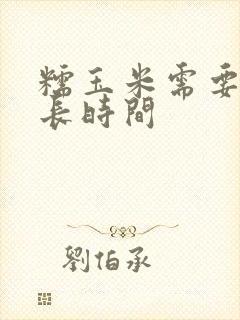 糯玉米需要
長時間
劉伯承